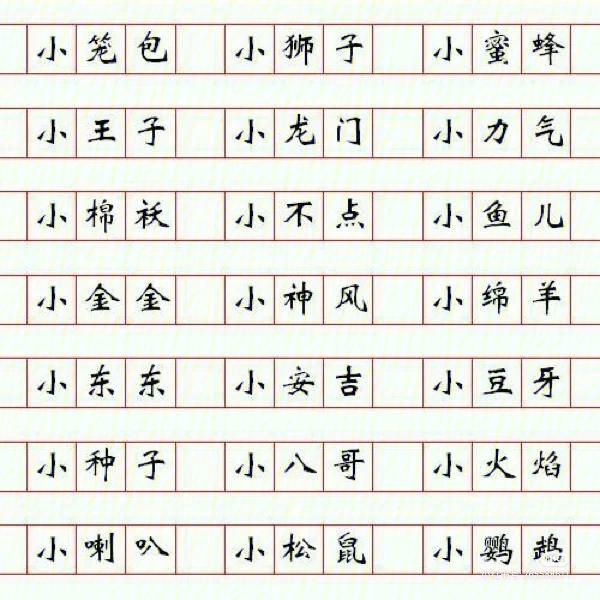 小笼包 小狮子 小蜜蜂
小王子 小龙门 小力气
小棉袄 小不点 小鱼儿
小金金 小神风 小绵羊
小东东 小安吉 小豆牙
小种子 小八哥 小火焰
小喇叭 小松鼠 小鹦鹉